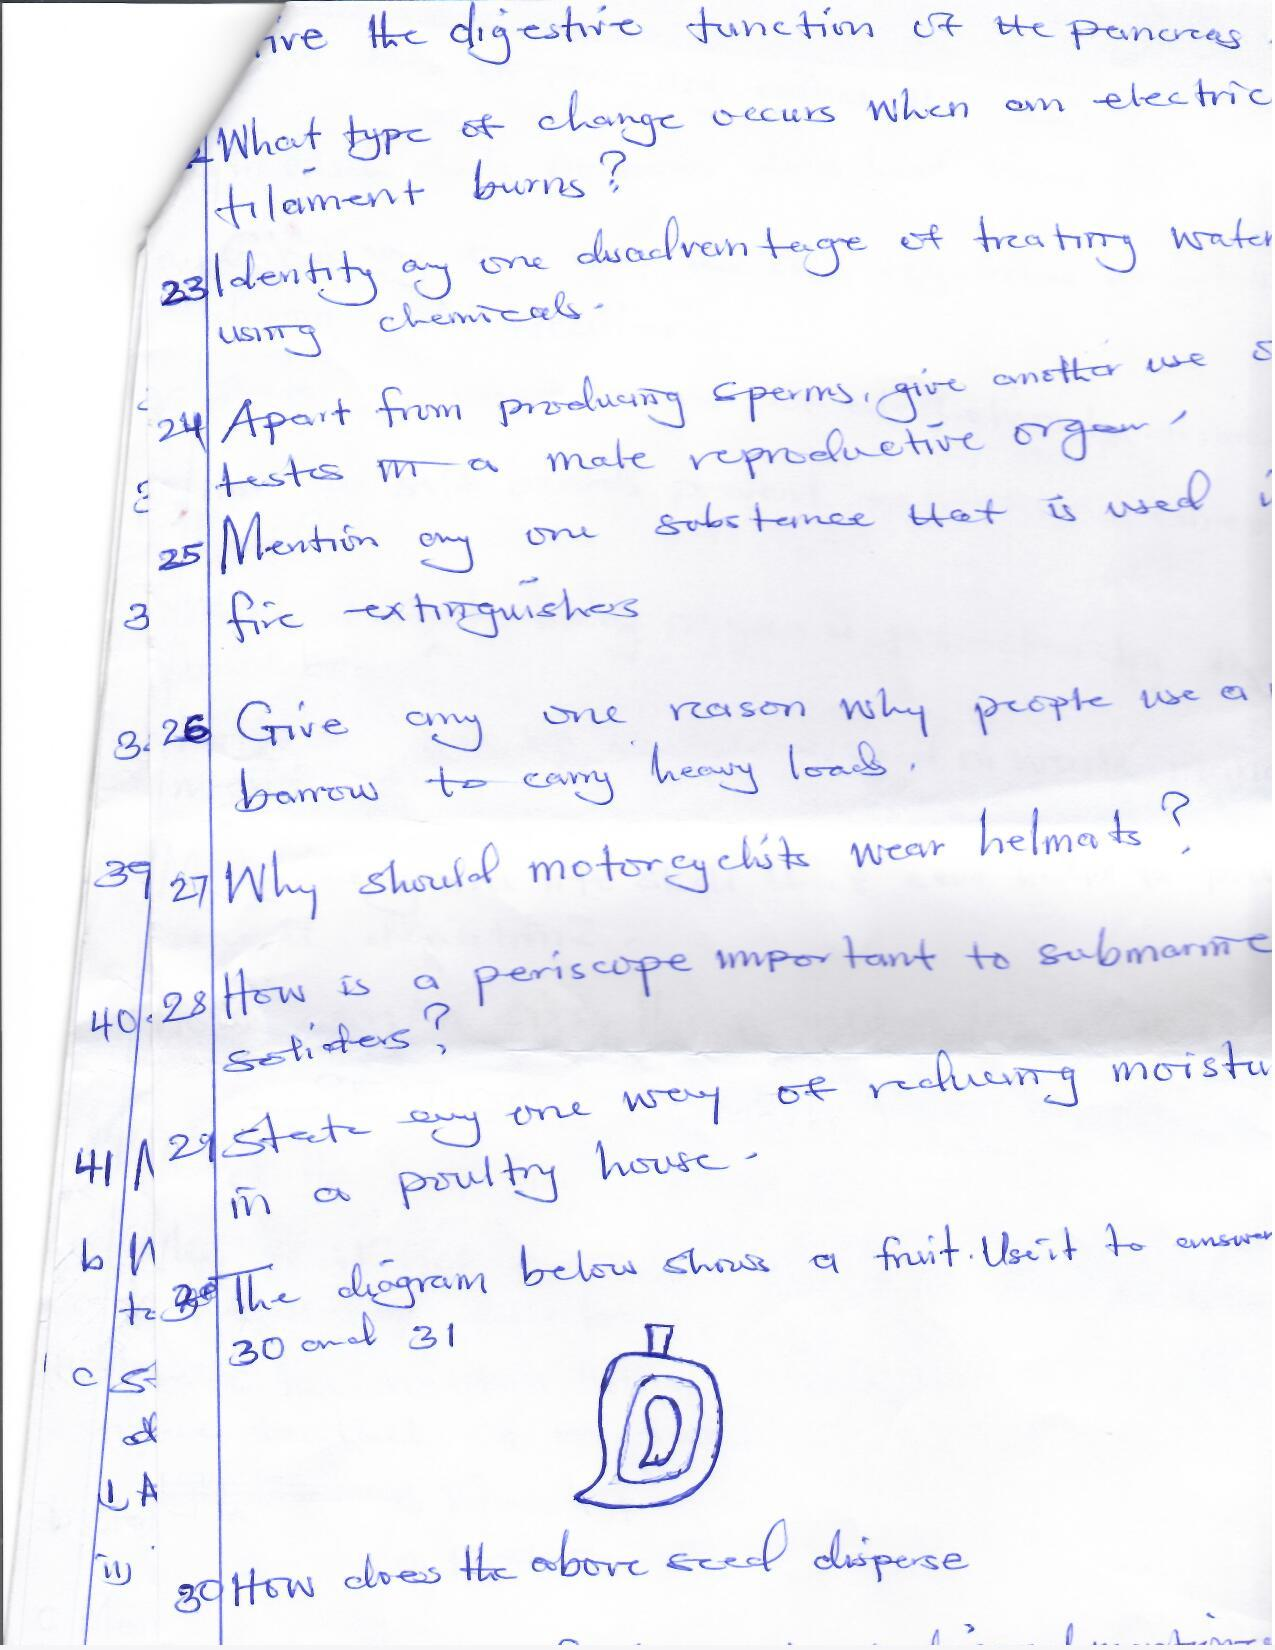 ive the digestive function of the pancreas
What type of change occurs when an electric
filament burns?
23 Identify any one disadvantage of treating water
using chemicals.
24 Apart from producing sperms, give another use
testes in a male reproductive organ.
25 Mention any one substance that is used
fire extinguishers
26 Give any one reason why people use a
barrow to carry heavy loads.
27 Why should motorcyclists wear helmats?
28 How is a periscope important to submarine
soliders?
29 State any one way of reducing moistu
in a poultry house.
30 The diagram below shows a fruit. Use it to answer
30 and 31
30 How does the above seed disperse
3
3
39
40.
41
b
to
c
i) A
ii)